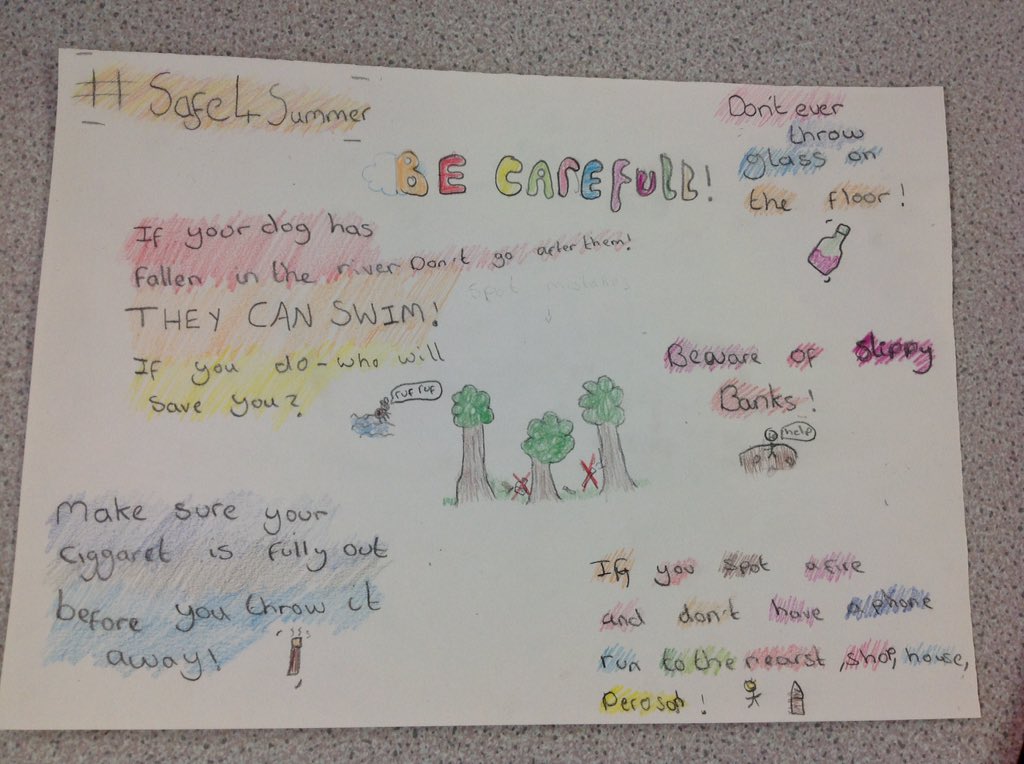 #Safe4Summer
BE CAREFULL!
Don't ever
throw
glass on
the floor!
If your dog has
fallen in the river Don't go after them!
THEY CAN SWIM!
If you do - who will
save you?
ruf ruf
spot mistakes
Beware of slippy
Banks!
help
Make sure your
Ciggaret is fully out
before you throw it
away!
If you spot a fire
and don't have a phone
run to the nearst, shop, house,
Person!